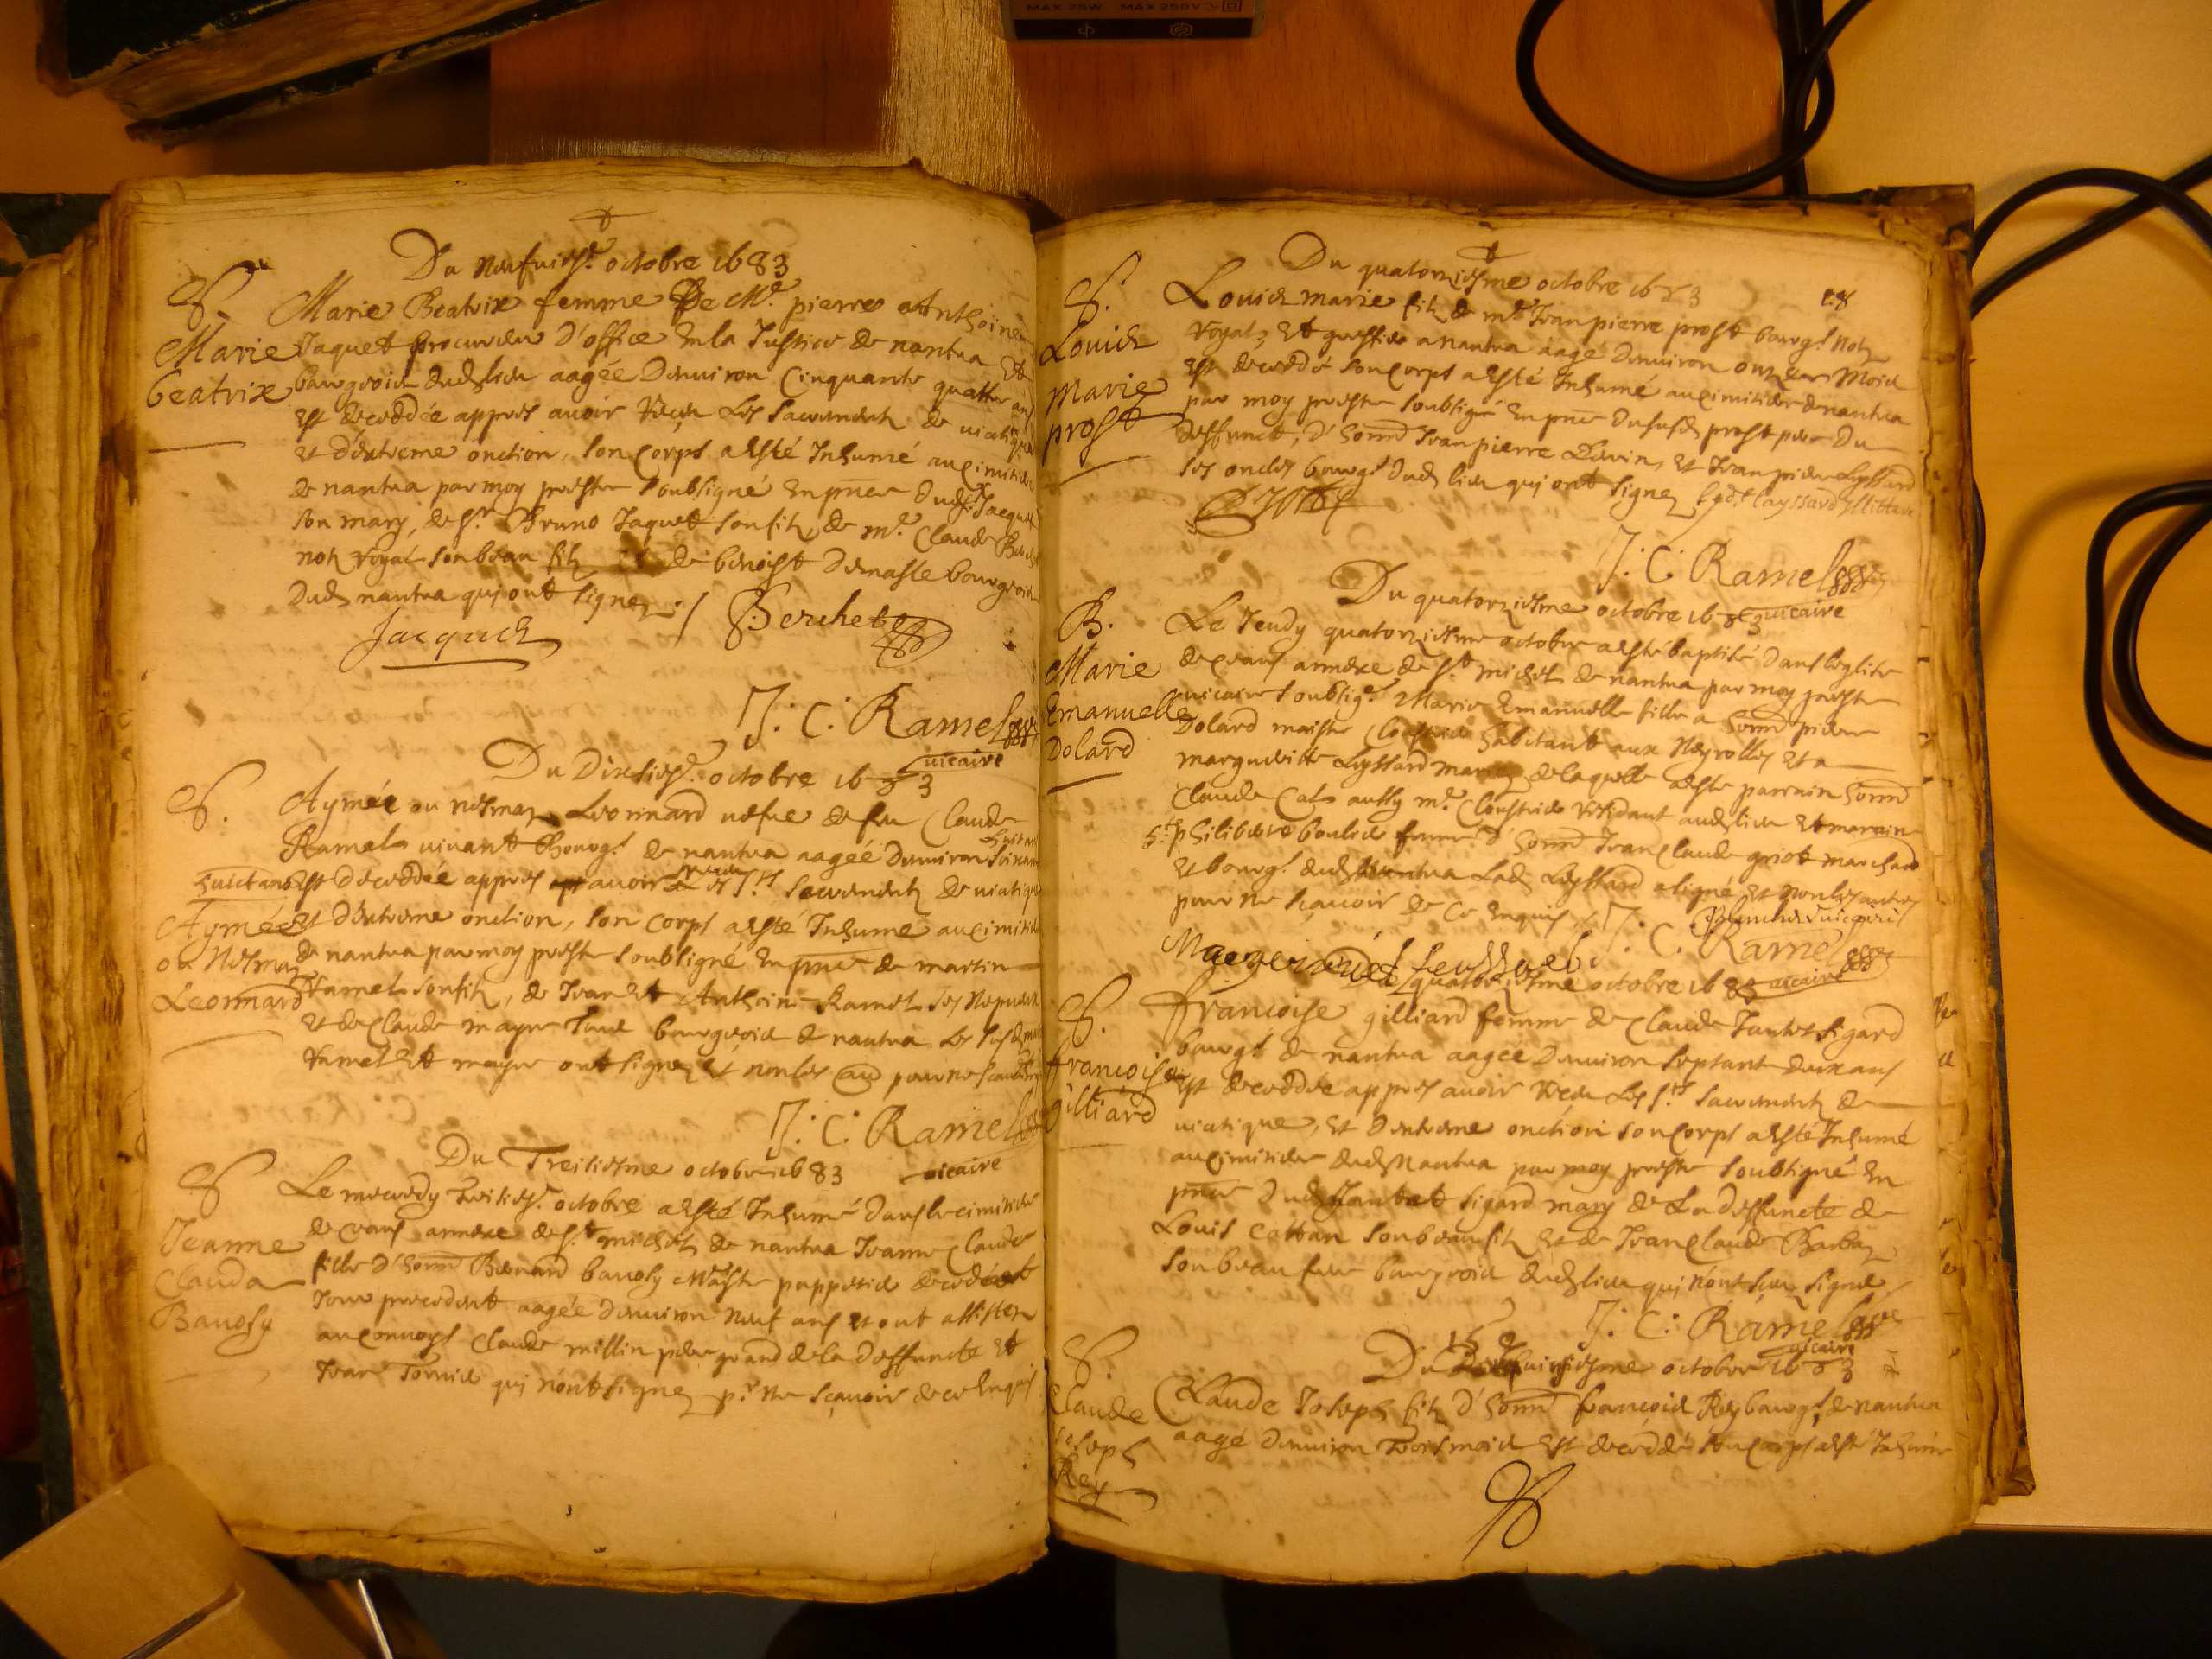 MAX 25W MAX 250V
Du neufuies.e octobre 1683
S.
Marie
beatrix
Marie Beatrix femme De Me. pierre Anthoine
Jaquet procureur d'office En la Justice de nantua Et
bourgeois dud. lieu aagée Denuiron Cinquante quattre ans
Est decedée appres auoir Receu Les Sacrements de uiatique
et d'extreme onction, son Corps a Esté Inhumé au Cimitiere
de nantua par moy prestre soubsigné En pnce dud. Sr Jacquet
son mary, de Sr. Bruno Jaquet son filz, de Me. Claude
not. royal son beau filz de benoist demasle bourgeois
Dud. nantua qui ont signez ./.
Jacquet Berchet
J. C. Ramel
uicaire
Du Dixsies.e octobre 1683
S.
huictante
Aymée
ou Nesmaz
Leonnard
Aymée ou nesmaz Leonnard uefue de feu Claude
Ramel uiuant bourg.s de nantua aagée denuiron
Est decedée appres auoir receu Les Sts. Sacrements de uiatique
et d'extreme onction, son Corps a Esté Inhumé au Cimitiere
de nantua par moy prestre soubsigné En pnce de martin
Ramel son filz, de Jean Et Anthoine Ramel ses Nepueux
et de Claude mayre bourgeois de nantua Les susd.
Ramel et mayre ont signez Et non les au pour ne scauoir
J. C. Ramel
uicaire
Du Treiziesme octobre 1683
S
Jeanne
Clauda
Banoly
Le mecredy treiziesm. octobre a Esté Inhumé dans le cimitiere
de annexe de St. michel de nantua Jeanne Claude
fille d'honn. Bernard banoly Maistre pappetier decedée
Jour precedent aagée denuiron neuf ans Et ont assistez
au Conuoys Claude millin pere grand de la deffuncte Et
Jean Tornier qui n'ont signez pr. ne scauoir de ce Enquis
Du quatorziesme octobre 1683
S.
Louis
Marie
prost
Louis marie filz de me. Jean pierre prost bourg.s Not.
royal, Et greffier a nantua aagé denuiron onze Mois
Est decedé son Corps a Esté Inhumé au Cimitiere de nantua
par moy prestre soubsigné En pnce du susd. prost pere du
deffunct, d'honn. Jean pierre et Jean pierre Leyssard
ses oncles bourg.s dud. lieu qui ont signez
J. C. Ramel
uicaire
Du quatorziesme octobre 1683
B.
Marie
Emanuelle
Dolard
Le Jeudy quatorziesme octobre a Esté baptisé dans l'eglise
de annexe de St. michel de nantua par moy prestre
uicaire soubsig. Marie Emanuelle fille a honn. pierre
Dolard maistre Cloustrier habitant aux Neyrolles Et a
margueritte Leyssard mariez de laquelle a Esté parrain honn.
Claude aussy me. Cloustrier residant aud. lieu Et maraine
philiberte femme d'honn. Jean Claude griot marchand
Et bourg. dud. Nantua Lad. Leyssard a signé Et non les autres
pour ne scauoir de Ce Enquis
J. C. Ramel
uicaire
quatorziesme octobre 1683
S.
francoise
gilliard
francoise gilliard femme de Claude Jantet Sigard
bourg.s de nantua aagée denuiron septante deux ans
Est decedée appres auoir Receu Les Sts. Sacrements de
uiatique, Et d'extreme onction son Corps a Esté Inhumé
au Cimitiere dud. Nantua par moy prestre soubsigné En
pnce dud. Jantet Sigard mary de La deffuncte de
Louis Cattan son beau filz Et de Jean Claude Barbaz
son beau frere bourgeois dud. lieu qui n'ont sceu signer
J. C. Ramel
uicaire
Du octobre 1683
S.
Claude
Joseph
Rey
Claude Joseph filz d'honn. francois Rey bourg.s de nantua
aagé denuiron Trois mois Est decedé son Corps a Esté Inhumé